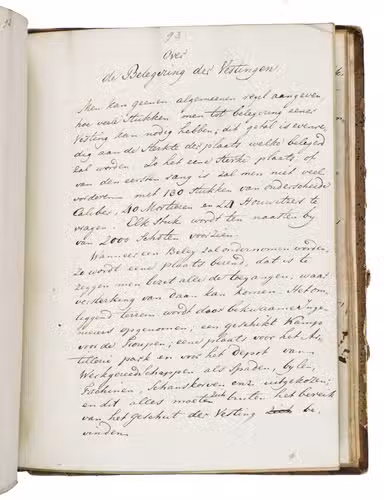 93
Over
de Belegering der Vestingen
Men kan geenen algemeenen regel aangeven,
hoe vele Stukken men tot belegering eener
Vesting kan nodig hebben; dit getal is evenre
dig aan de Sterkte der plaats welke belegerd
zal worden. Is het eene Sterke plaats, of
van den eersten rang is zal men niet veel
vorderen met 130 Stukken van onderscheide
Caliber, 40 Mortieren en 24 Houwitzers te
vragen. Elk Stuk wordt ten naasten by
van 2000 Schoten voorzien.
Wanneer een Beleg zal ondernomen worden,
zo wordt eene plaats berend, dat is te
zeggen men bezet alle de toegangen, waar
versterking van daan kan komen. Het om
leggend terrein wordt door bekwaame Inge
nieurs opgenomen, een geschikt Kamp
voor de Troupen, eene plaats voor het Ar
tillerie park en voor het Depot van
Werkgereedschappen als Spaden, bylen,
Fachinen, Schanskorven enz. uitgekozen;
en dit alles moeten zich buiten het bereik
van het geschut der Vesting be
vinden